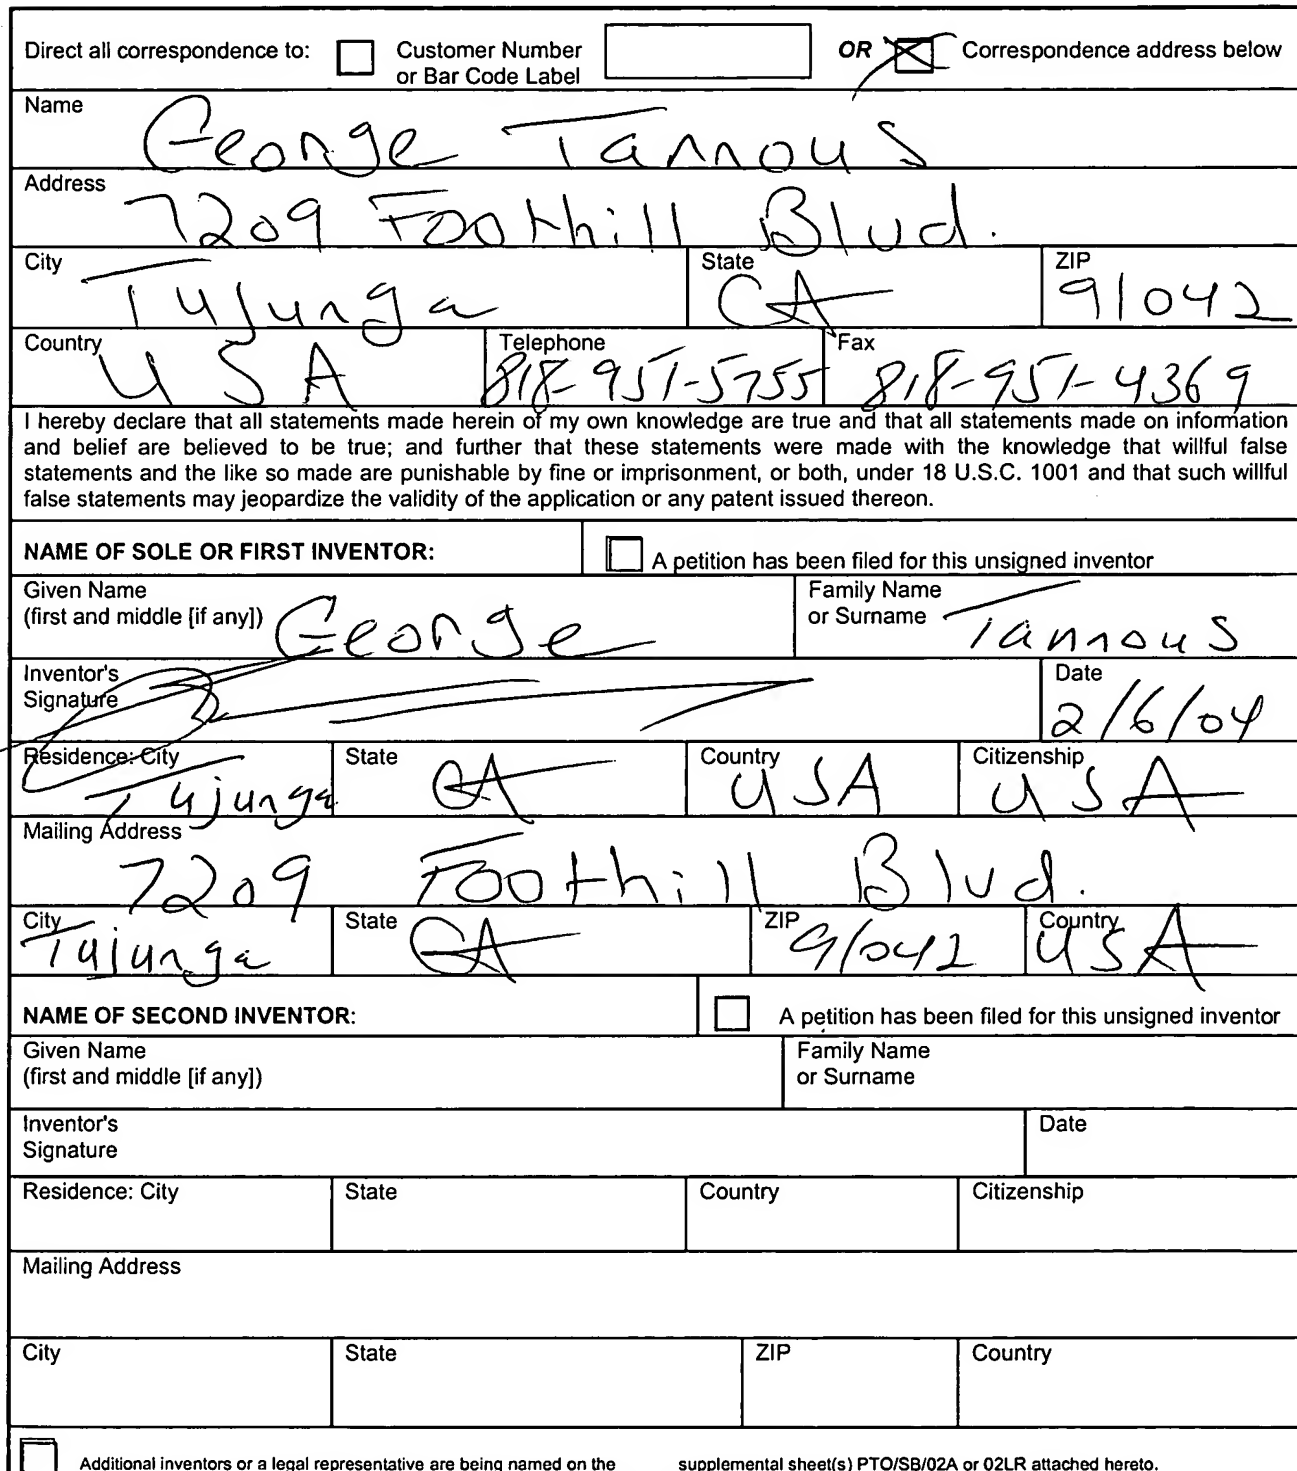 Direct all correspondence to: Customer Number or Bar Code Label OR Correspondence address below
Name
George Tannous
Address
7209 Foothill Blvd.
City State ZIP
Tujunga CA 91042
Country Telephone Fax
USA 818-951-5755 818-951-4369
I hereby declare that all statements made herein of my own knowledge are true and that all statements made on information
and belief are believed to be true; and further that these statements were made with the knowledge that willful false
statements and the like so made are punishable by fine or imprisonment, or both, under 18 U.S.C. 1001 and that such willful
false statements may jeopardize the validity of the application or any patent issued thereon.
NAME OF SOLE OR FIRST INVENTOR: A petition has been filed for this unsigned inventor
Given Name Family Name
(first and middle [if any]) George or Surname Tannous
Inventor's Date
Signature 2/6/04
Residence: City State Country Citizenship
Tujunga CA USA USA
Mailing Address
7209 Foothill Blvd.
City State ZIP Country
Tujunga CA 91042 USA
NAME OF SECOND INVENTOR: A petition has been filed for this unsigned inventor
Given Name Family Name
(first and middle [if any]) or Surname
Inventor's Date
Signature
Residence: City State Country Citizenship
Mailing Address
City State ZIP Country
Additional inventors or a legal representative are being named on the supplemental sheet(s) PTO/SB/02A or 02LR attached hereto.